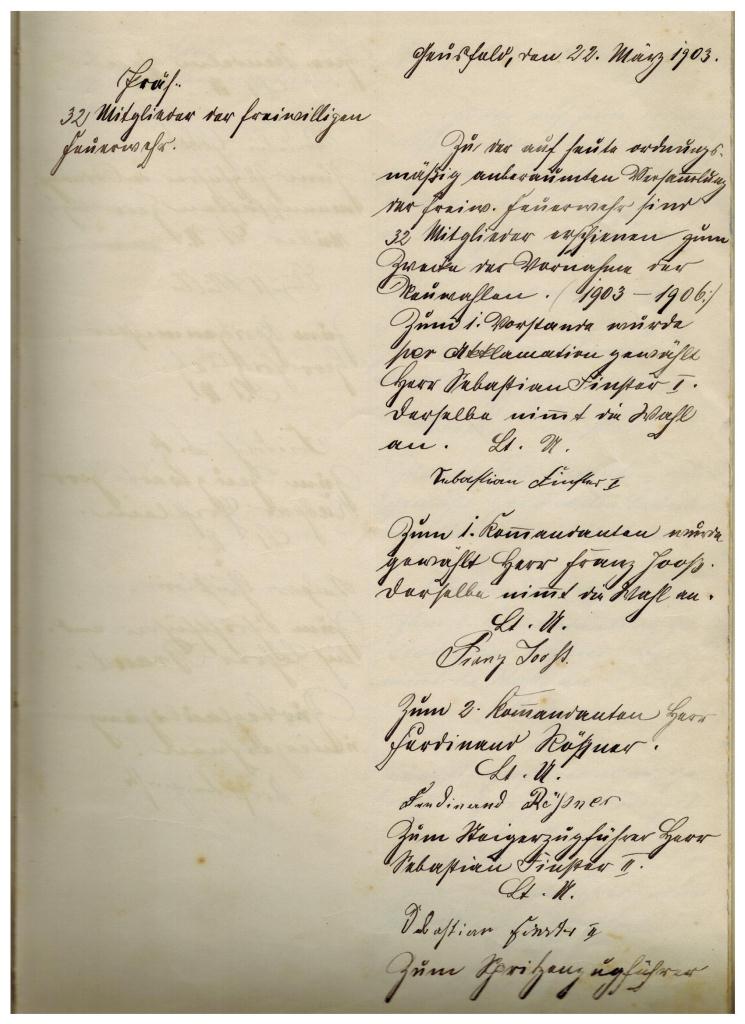 Geusfeld, den 22. März 1903.
Präs..
32 Mitglieder der freiwilligen
Feuerwehr.
Zu der auf heute ordnungs-
mäßig anberaumten Versammlung
der freiw. Feuerwehr sind
32 Mitglieder erschienen zum
Zwecke der Vornahme der
Neuwahlen. (1903 – 1906:)
Zum 1. Vorstande wurde
per Akklamation gewählt
Herr Sebastian Finster I.
Derselbe nimmt die Wahl
an. Lt. U.
Sebastian Finster I
Zum 1. Kommandanten wurde
gewählt Herr Franz Jooß.
Derselbe nimmt die Wahl an.
Lt. U.
Franz Jooß.
Zum 2. Kommandanten Herr
Ferdinand Rößner.
Lt. U.
Ferdinand Rößner
Zum Steigerzugführer Herr
Sebastian Finster II.
Lt. U.
Sebastian Finster II
Zum Spritzenzugführer